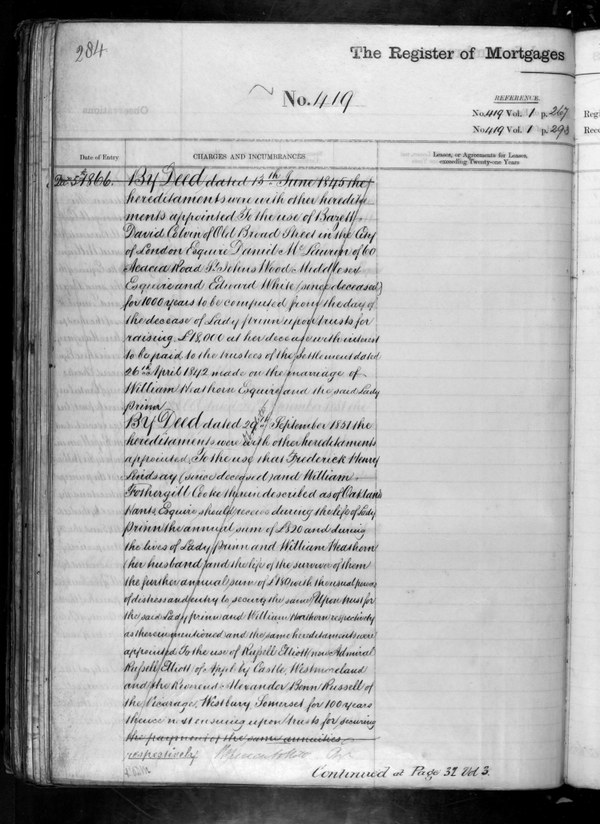 284
The Register of Mortgages
No. 419
REFERENCE.
No. 419 Vol. 1 p. 267
No. 419 Vol. 1 p. 293
Regi
Reco
Date of Entry
CHARGES AND INCUMBRANCES
Leases, or Agreements for Leases,
exceeding Twenty-one Years
1866.
By Deed dated 13th June 1845 the
hereditaments were with other heredita
ments appointed To the use of
David Colvin of Old Broad Street in the City
of London Esquire Daniel McLaurin of 60
Acacia Road St Johns Wood Middlesex
Esquire and Edward White (since deceased)
for 1000 years to be computed from the day of
the decease of Lady Prinn upon trusts for
raising £18,000 at her decease with interest
to be paid to the trustees of the Settlement dated
26th April 1842 made on the marriage of
William Heathorn Esquire and the said Lady
Prinn
By Deed dated 29th September 1851 the
hereditaments were with other hereditaments
appointed To the use that Frederick Henry
Lindsay (since deceased) and William
Fothergill Cooke therein described as of Oaklands
Hants Esquire should receive during the life of Lady
Prinn the annual sum of £320 and during
the lives of Lady Prinn and William Heathorn
(her husband) and the life of the survivor of them
the further annual sum of £180 with the usual powers
of distress and entry to secure the same Upon trust for
the said Lady Prinn and William Heathorn respectively
as therein mentioned and the same hereditaments were
appointed To the use of Russell Elliott now Admiral
Russell Elliott of Appleby Castle Westmoreland
and the Reverend Alexander Benn Russell of
the Vicarage Westbury Somerset for 100 years
thence next ensuing upon trusts for securing
the payment of the same annuities
respectively
Continued at Page 32 Vol 3.